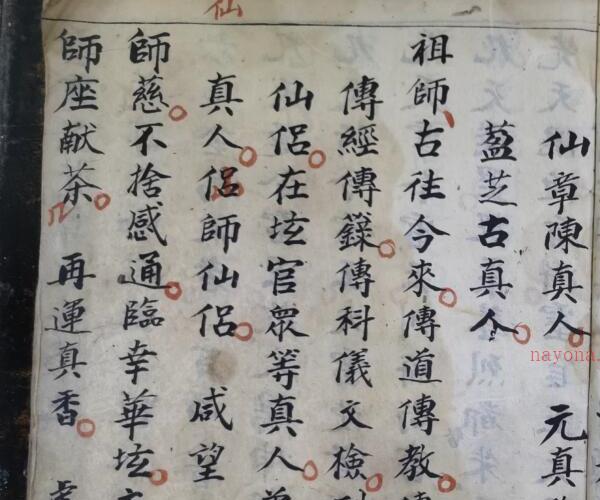 仙章陳真人 元真
蓋芝古真人
祖師古往今來傳道傳教
傳經傳籙傳科儀文檢
仙侶在坛官眾等真人
真人侶師仙侶 咸望
師慈不捨感通臨幸華坛
師座献茶 再運真香
仙
nayona.